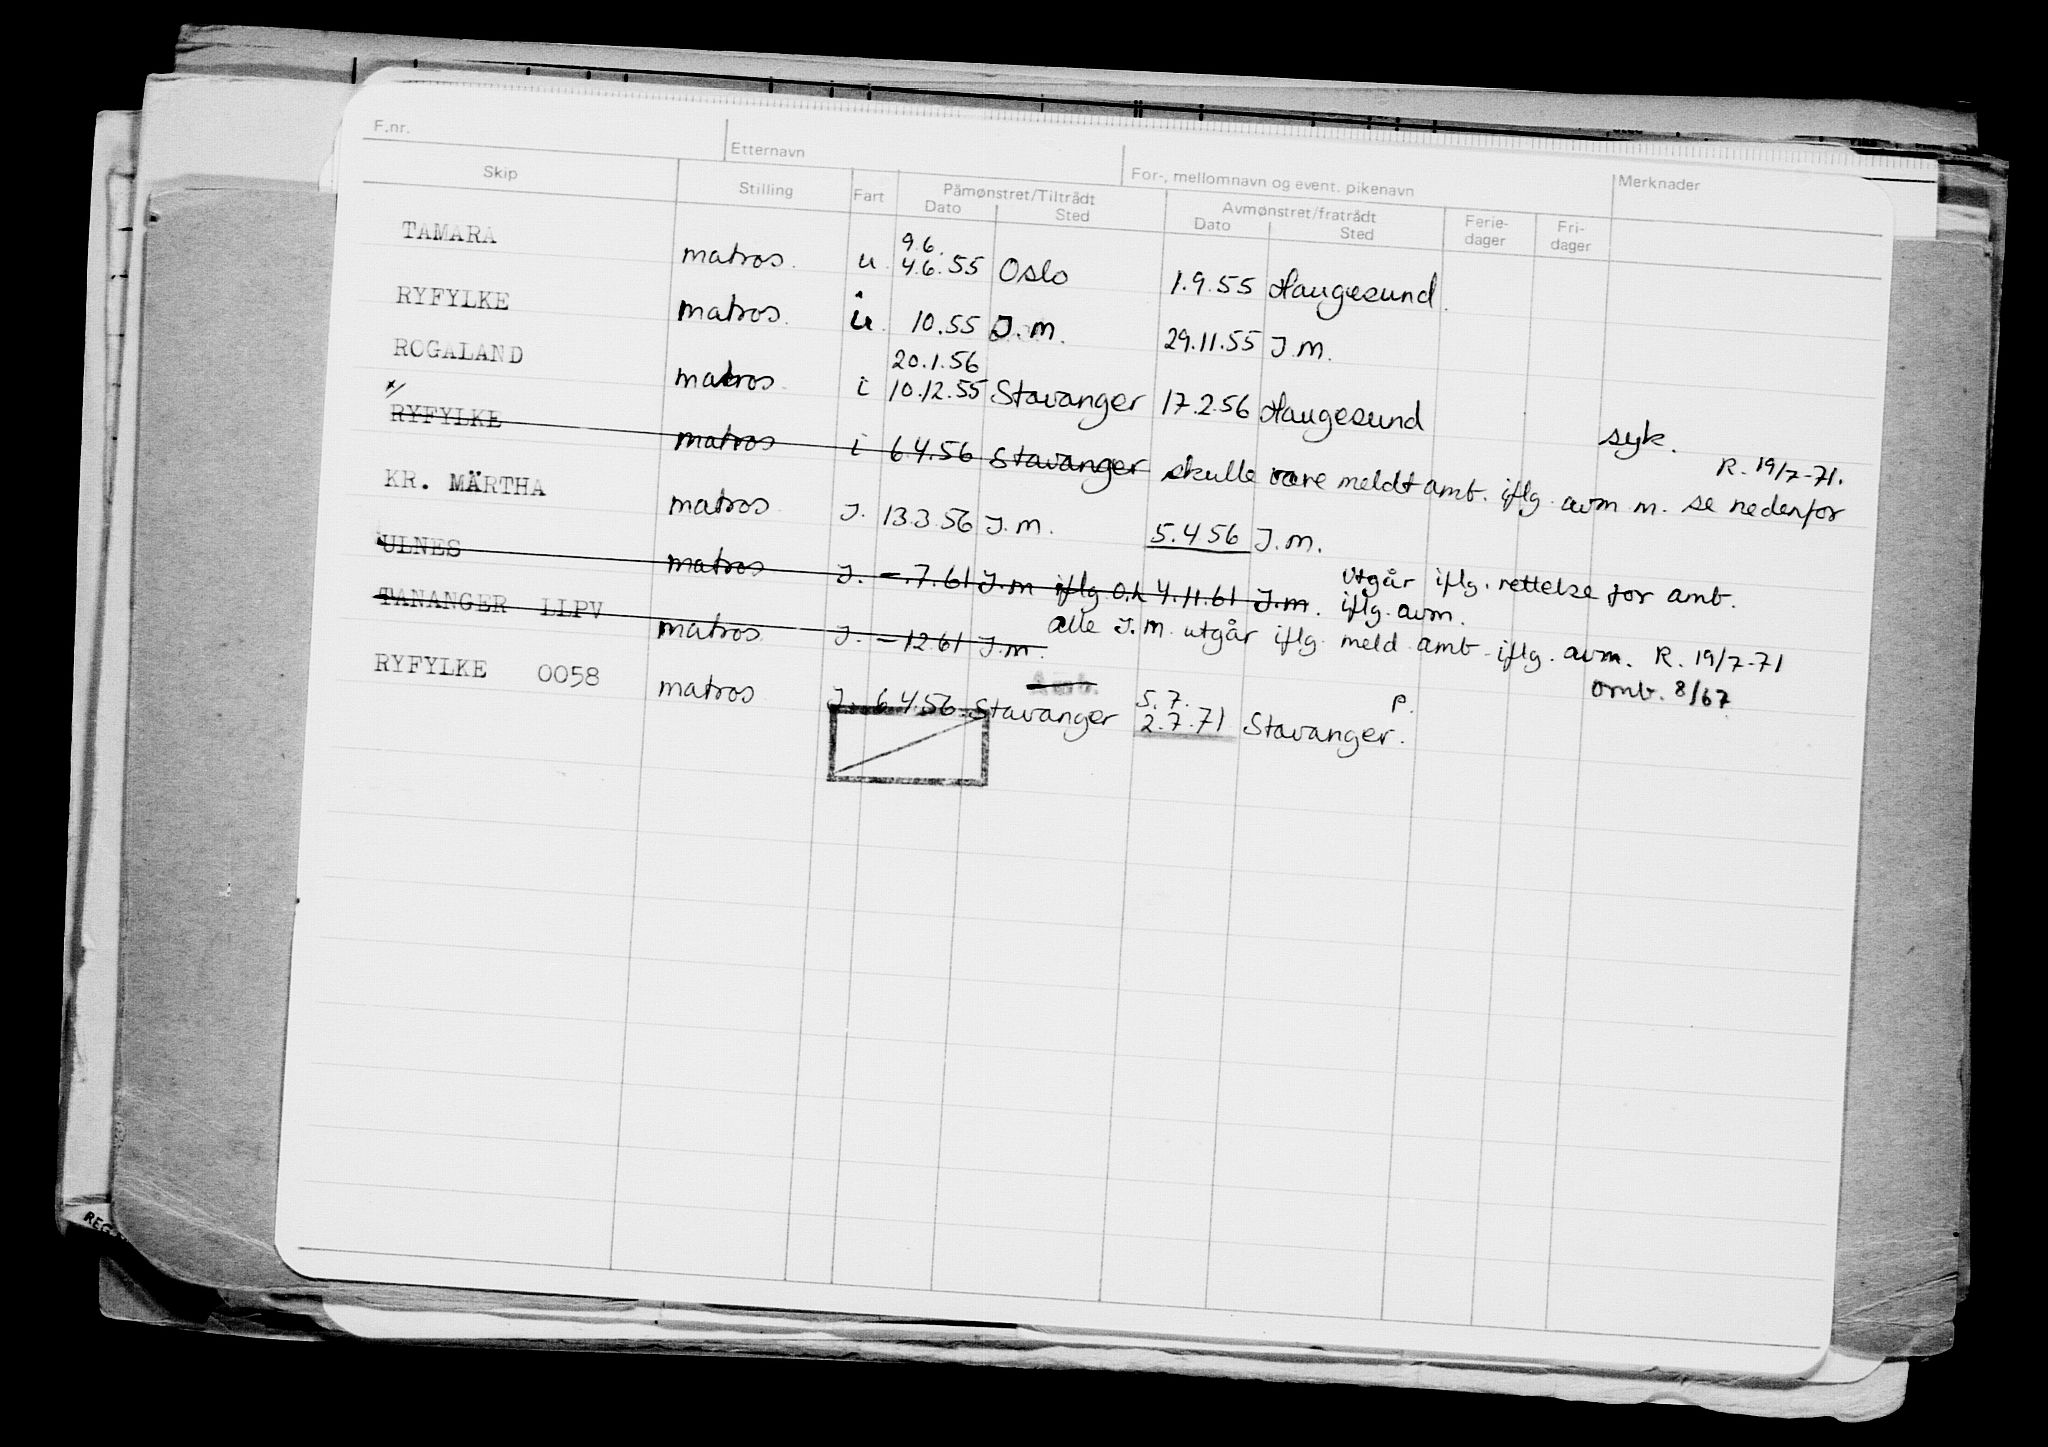 F.nr. Etternavn For-, mellomnavn og event. pikenavn Merknader
Skip Stilling Fart Påmønstret/Tiltrådt Avmønstret/fratrådt Ferie- Fri-
Dato Sted Dato Sted dager dager
9.6.
TAMARA matros. u. 4.6.55 Oslo 1.9.55 Haugesund.
RYFYLKE matros. u. 10.55 J.m. 29.11.55 J.m.
20.1.56
ROGALAND matros. i 10.12.55 Stavanger 17.2.56 Haugesund syk.
R. 19/7-71.
RYFYLKE matros i 6.4.56 Stavanger skulle være meldt amt. iflg. avm m. se nedenfor
KR. MÄRTHA matros J. 13.3.56 J.m. 5.4.56 J.m.
utgår iflg. rettelse for amt.
ULNES matros J. -.7.61 J.m iflg O.k 4.11.61 J.m. iflg. avm.
alle J.m. utgår iflg. meld amt iflg. avm. R. 19/7-71
TANANGER LLPV matros J. -12.61 J.m.
omb. 8/67
5.7. P.
RYFYLKE 0058 matros J. 6.4.56 Stavanger 2.7.71 Stavanger.